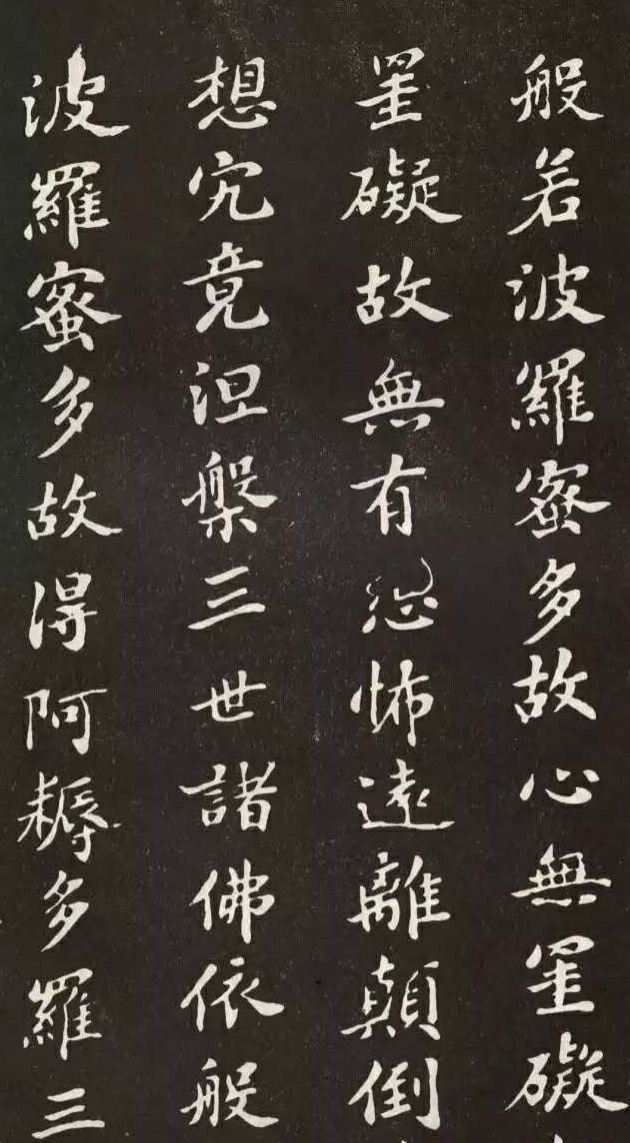 般若波羅蜜多故心無罣礙
罣礙故無有恐怖遠離顛倒
想究竟涅槃三世諸佛依般
波羅蜜多故得阿耨多羅三